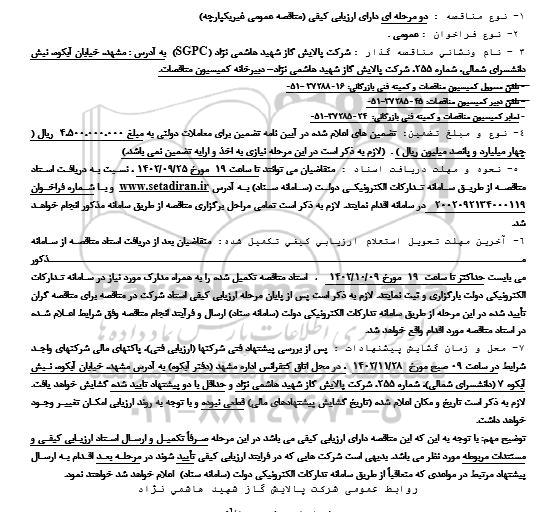 ۱- نوع مناقصه : دو مرحله ای دارای ارزیابی کیفی (مناقصه عمومی غیریکپارچه)
۲- نوع فراخوان : عمومی .
۳- نام ونشاني مناقصه گذار : شرکت پالایش گاز شهید هاشمی نژاد (SGPC) به آدرس : مشهد، خیابان آبکوه، نبش
دانشسرای شمالی، شماره ۲۵۵، شرکت پالایش گاز شهید هاشمی نژاد– دبیرخانه کمیسیون مناقصات.
– تلفن مسوول کمیسیون مناقصات و کمیته فنی بازرگانی: ۱۶-۳۷۲۸۸-۰۵۱
– تلفن دبیر کمیسیون مناقصات: ۴۵-۳۷۲۸۵-۰۵۱
– نمابر کمیسیون مناقصات و کمیته فنی بازرگانی: ۲۴-۳۷۲۸۵-۰۵۱
۴- نوع و مبلغ تضمین: تضمین های اعلام شده در آیین نامه تضمین برای معاملات دولتی به مبلغ ۴.۵۰۰.۰۰۰.۰۰۰ ریال (
چهار میلیارد و پانصد میلیون ریال ) . (لازم به ذکر است در این مرحله نیازی به اخذ و ارایه تضمین نمی باشد)
۵- نحوه و مهلت دریافت اسناد : متقاضیان می توانند تا ساعت ۱۹ مورخ ۱۴۰۲/۰۹/۲۵ ، نسبت به دریافت اسناد
مناقصه از طریق سامانه تدارکات الکترونیکی دولت (سامانه ستاد) به آدرس www.setadiran.ir و با شماره فراخوان
۲۰۰۲۰۹۲۱۳۴۰۰۰۱۱۹ در سامانه اقدام نمایند. لازم به ذکر است تمامی مراحل برگزاری مناقصه از طریق سامانه مذکور انجام خواهد
شد.
۶- آخرین مهلت تحویل استعلام ارزیابي کیفي تکمیل شده: متقاضیان بعد از دریافت اسناد مناقصه از سامانه
مذکور
می بایست حداکثر تا ساعت ۱۹ مورخ ۱۴۰۲/۱۰/۰۹ ، اسناد مناقصه تکمیل شده را به همراه مدارک مورد نیاز در سامانه تدارکات
الکترونیکی دولت بارگزاری و ثبت نمایند. لازم به ذکر است پس از پایان مرحله ارزیابی کیفی اسناد شرکت در مناقصه برای مناقصه گران
تأیید شده در این مرحله از طریق سامانه تدارکات الکترونیکی دولت (سامانه ستاد) ارسال و فرآیند انجام مناقصه وفق شرایط اعلام شده
در اسناد مناقصه مورد اقدام واقع خواهد شد.
۷- محل و زمان گشایش پیشنهادات : پس از بررسی پیشنهاد فنی شرکتها (ارزیابی فنی)، پاکتهای مالی شرکتهای واجد
شرایط در ساعت ۰۹ صبح مورخ ۱۴۰۲/۱۱/۲۸ ، در محل اتاق کنفرانس اداره مشهد (دفتر آبکوه) به آدرس مشهد، خیابان آبکوه، نبش
آبکوه ۷ (دانشسرای شمالی)، شماره ۲۵۵، شرکت پالایش گاز شهید هاشمی نژاد و حداقل با دو پیشنهاد تایید شده گشایش خواهد یافت.
لازم به ذکر است تاریخ و مکان اعلام شده (تاریخ گشایش پیشنهادهای مالی) قطعی نبوده و با توجه به روند ارزیابی امکان تغییر وجود
خواهد داشت.
توضیح مهم: با توجه به این که این مناقصه دارای ارزیابی کیفی می باشد در این مرحله صرفاً تکمیل و ارسال اسناد ارزیابی کیفی و
مستندات مربوطه مورد نظر می باشد. بدیهی است شرکت هایی که در فرایند ارزیابی کیفی تأیید شوند در مرحله بعد اقدام به ارسال
پیشنهاد مرتبط در مواعدی که متعاقباً از طریق سامانه تدارکات الکترونیکی دولت (سامانه ستاد) اعلام خواهد شد خواهند نمود.
روابط عمومی شرکت پالایش گاز شهید هاشمي نژاد